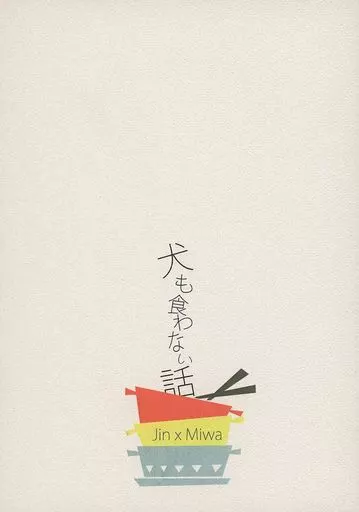 犬も食わない話
Jin x Miwa